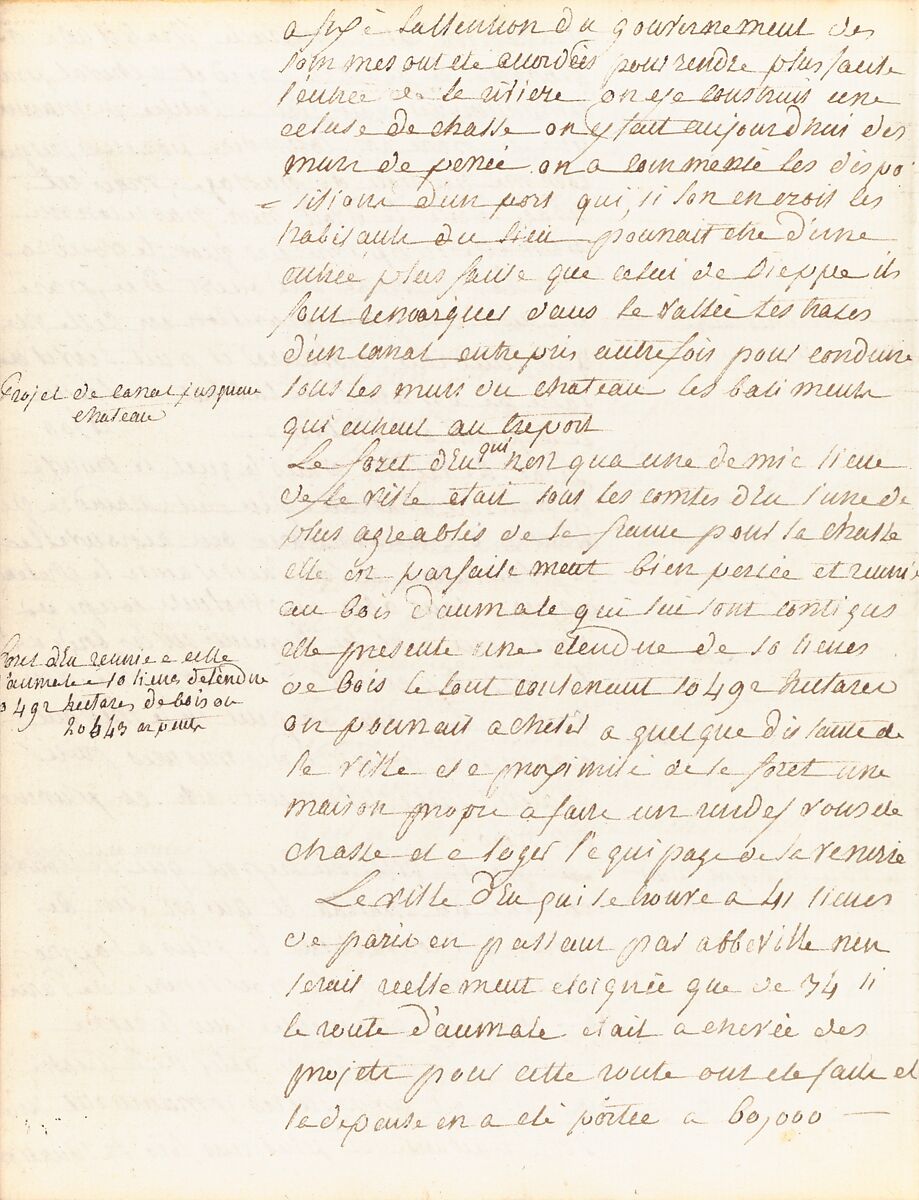 a fixé lattention du gouvernement des
sommes ont été accordées pour rendre plus facile
lentrée de la riviere on y a construit une
ecluse de chasse on y fait aujourdhui des
murs de on a commencé les dispo
= sitions dun port qui, si lon en croit les
habitants du lieu pourrait etre d'une
entrée plus facile que celui de Dieppe ils
font remarquer dans la vallée les traces
d'un canal entrepris autrefois pour conduire
sous les murs du chateau les batiments
qui entrent au treport
Projet de canal jusquau
chateau
La foret d'Eu qui nest qua une demie lieue
de la ville etait sous les comtes dEu l'une des
plus agreables de la france pour la chasse
elle est parfaitement bien percée et reunie
au bois d'aumale qui lui sont contigus
elle presente une étendue de 10 lieues
de bois le tout contenant 10492 hectares
Foret d'Eu reunie a celle
d'aumale 10 lieues detendue
10492 hectares de bois ou
20543 arpents
on pourrait acheter a quelque distance de
la ville et a proximité de la foret une
maison propre a faire un rendez vous de
chasse et a loger l'equipage de la venerie
La ville d'Eu qui se trouve a 41 lieues
de paris en passant par abbeville nen
serait reellement eloignée que de 34 li
la route d'aumale etait achevée des
projets pour cette route ont été faits et
la depense en a été portée a 60,000 —